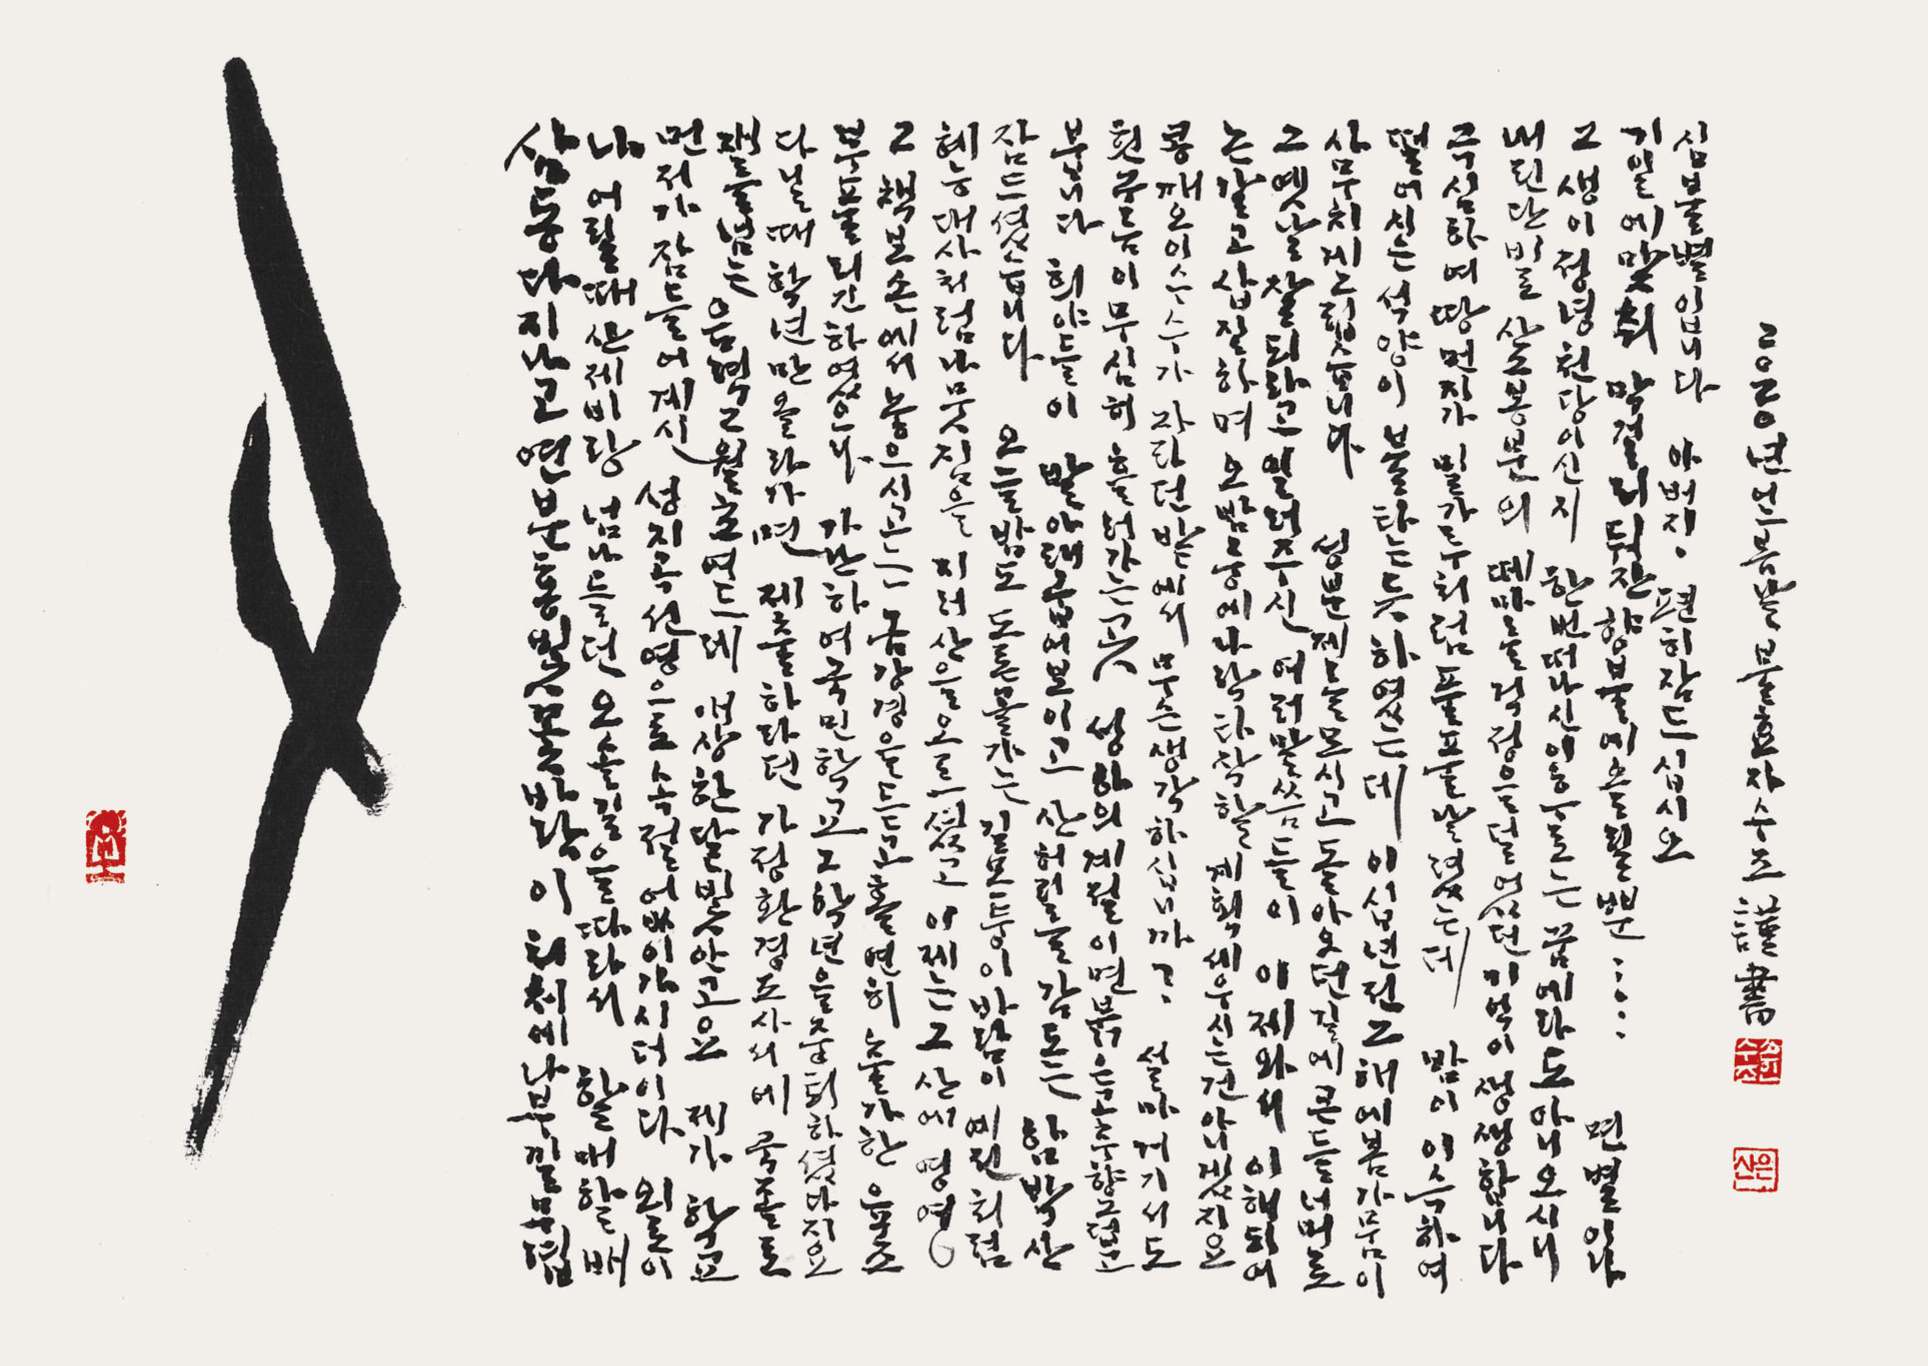 삼동 다 지나고 연분홍빛 꽃바람이 나부낄 무렵
나 어릴 때 산제비랑 넘나들던 오솔길을 따라서 할매 할배
먼저가 잠들어 계신 성지곡 선영으로 가시더이다 외로이
음력 앙상한 달빛 안고요 제가 학교
다닐 때 학년만 올라가면 제출하라던 가정환경조사서에 국졸로
부풀리긴 하였으나 가난하여 국민학교 그 학년을 중퇴하셨다지요
그 책보 손에서 놓으시고는 금강경을 듣고 홀연히 출가한 육조
혜능대사처럼 나뭇짐을 지러 산을 오르셨고 이제는 그 산에 영영
잠드셨습니다 오늘밤도 가는 길모퉁이 바람이 예전처럼
붑니다 발아래 굽어보이고 산허릴 감도는 함박산
흰구름이 무심히 흘러가는 곳 성하의 계절이면 붉은 고추 향그럽고
콩 깨 오이 수수가 자라던 밭에서 무슨 생각하십니까? 설마 거기서도
논 갈고 삽질하며 오밤중에 나락타작할 계획 세우시는 건 아니겠지요
그 옛날 잘 되라고 일러주신 여러 말씀들이 이제와서 이해되어
사무치게 그립습니다 성분제를 모시고 돌아오던 길에 큰들 너머로
떨어지는 석양이 불타는 듯 하였는데 이십년 전 그 해에 봄가뭄이
극심하여 땅먼지가 밀가루처럼 풀풀 날렸는데 밤이 이슥하여
내린 단비로 산소 봉분의 떼마를 걱정을 덜었던 기억이 생생합니다
그 생이 정녕 천당이신지 한번 떠나신 이후로는 꿈에라도 아니오시니
기일에 맞춰 막걸리 둬잔 향불에 올릴 뿐...... 면별이라
심불별입니다 아버지. 편히 잠드십시오
2020년 여름밤 불효자 수조 謹書
은산